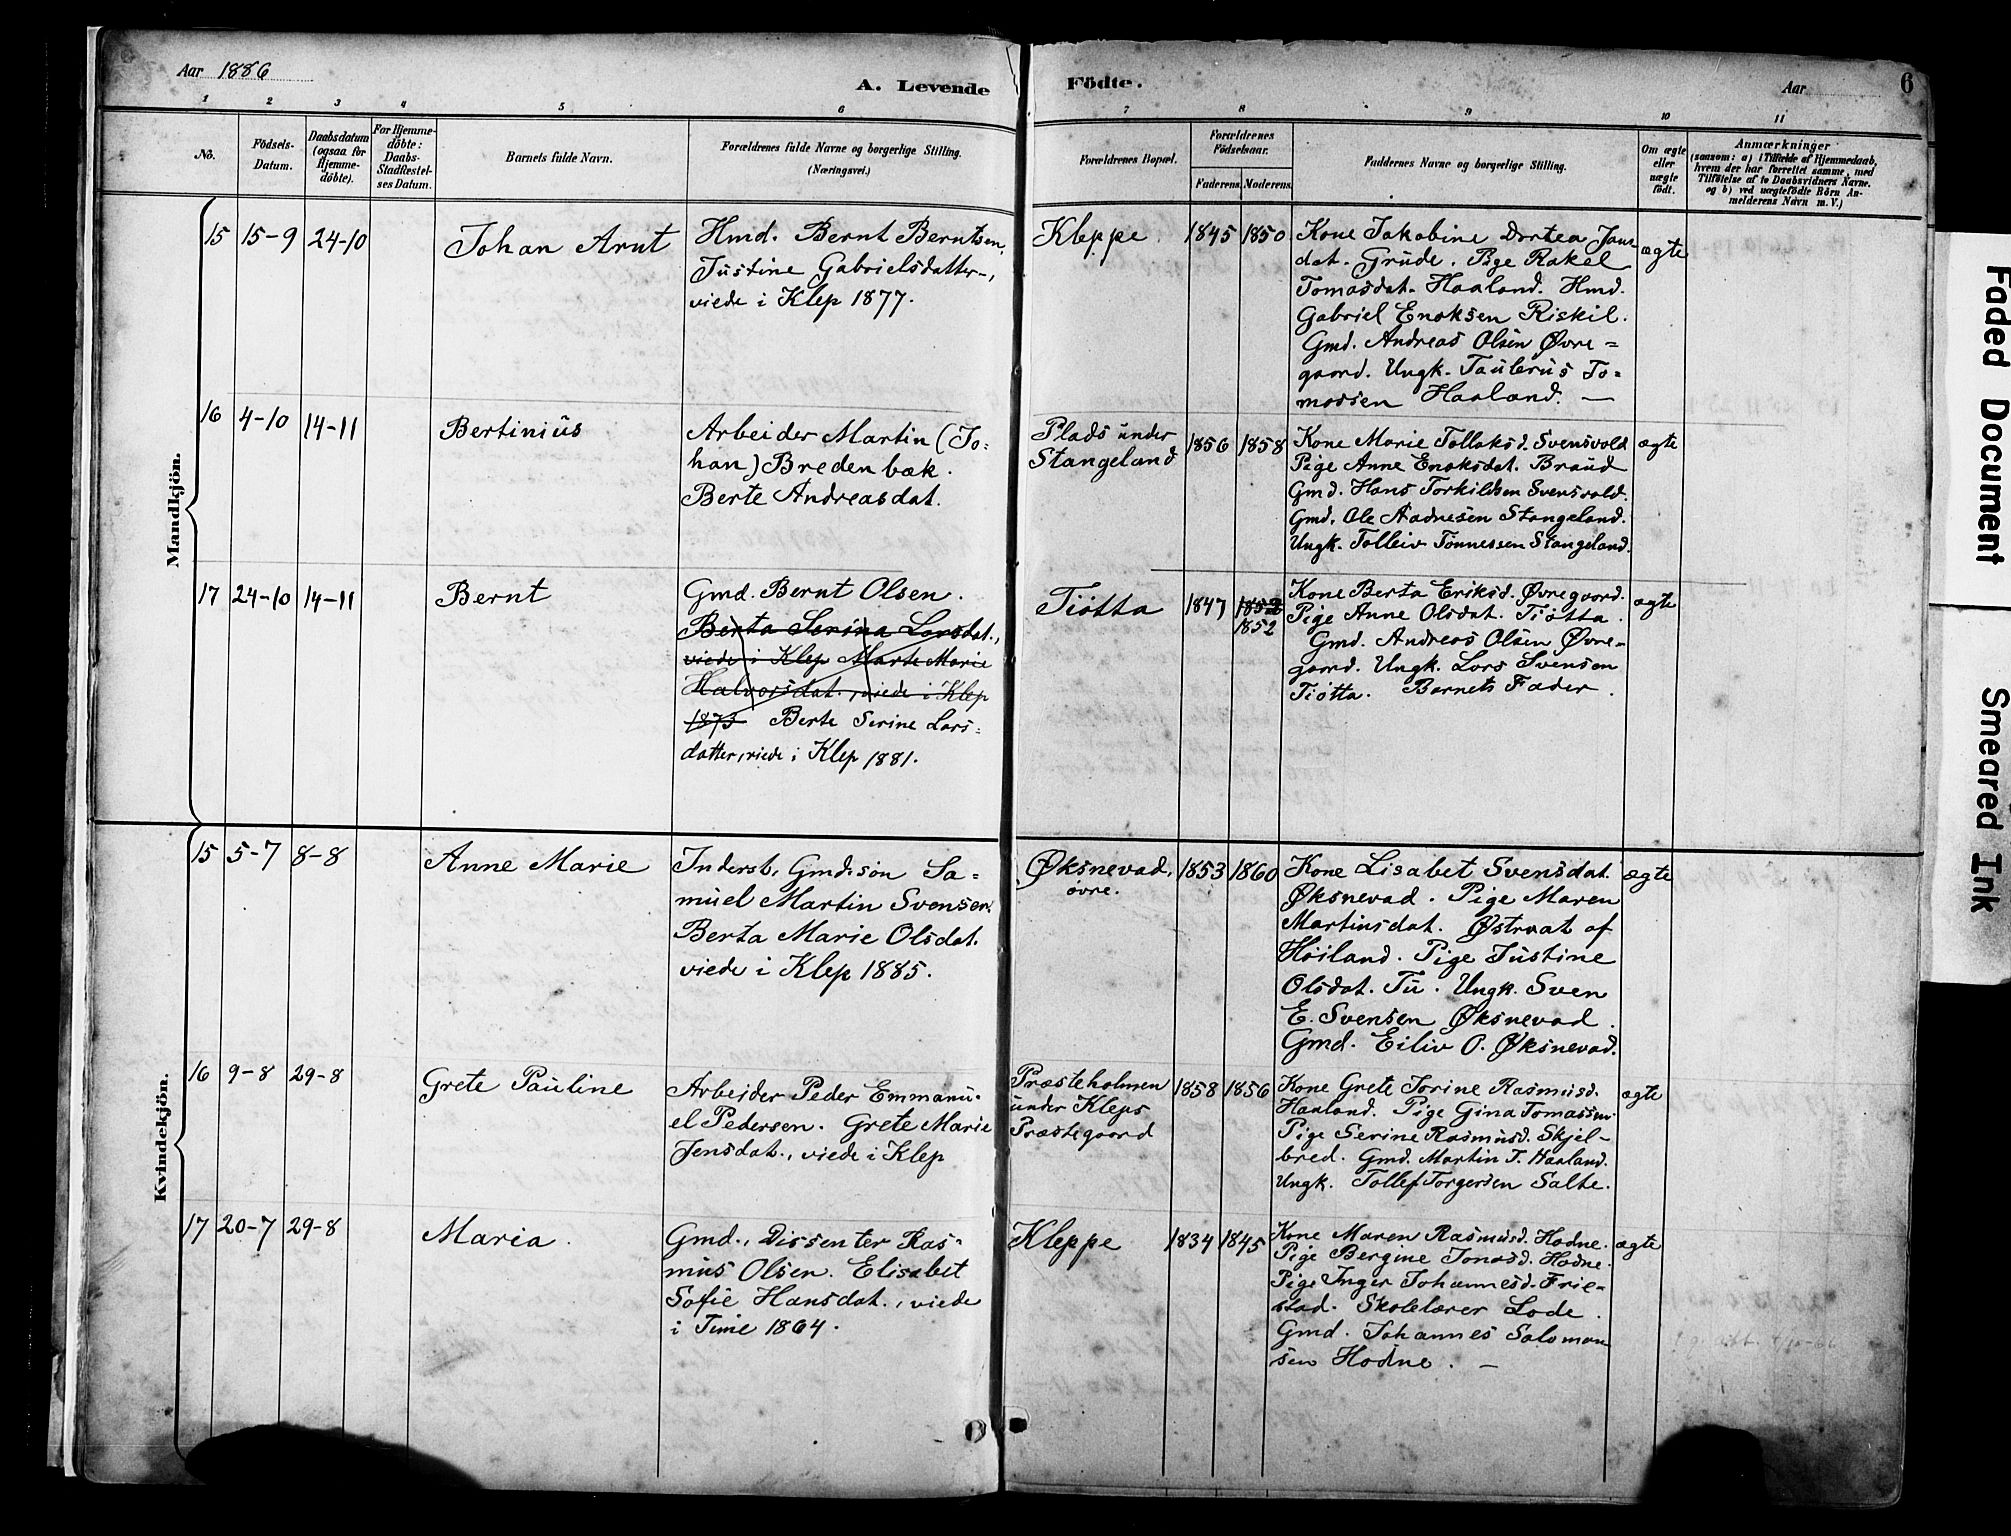 Aar 1886
A. Levende Födte.
Aar
6
1 2 3 4 5 6 7 8 9 10 11
No.
Födsels-
Datum.
Daabsdatum
(ogsaa for
Hjemme-
döbte).
For Hjemme-
döbte:
Daabs-
Stadfæstel-
ses Datum.
Barnets fulde Navn.
Forældrenes fulde Navne og borgerlige Stilling.
(Næringsvei.)
Forældrenes Bopæl.
Forældrenes
Födselsaar.
Faderens. Moderens.
Faddernes Navne og borgerlige Stilling.
Om ægte
eller
uægte
födt.
Anmærkninger
(saasom: a) i Tilfælde af Hjemmedaab,
hvem der har forrettet samme, med
Tilföielse af to Daabsvidners Navne.
og b) ved uægtefödte Börn An-
melderens Navn m. V.)
Mandkjön.
15 15-9 24-10
Johan Arnt
Hmd. Bernt Berntsen,
Justine Gabrielsdatter,
viede i Klep 1877.
Kleppe.
1845 1850
Kone Jakobine Dortea Jans
dat. Grude. Pige Rakel
Tomasdat. Haaland. Hmd.
Gabriel Enoksen Riskil.
Gmd. Andreas Olsen Øvre=
gaard. Ungk. Taulerus To=
massen Haaland. —
ægte
16 4-10 14-11
Bertinius
Arbeider Martin (Jo-
han) Bredenbæk.
Berte Andreasdat.
Plads under
Stangeland
1856 1858
Kone Marie Tollaksd. Svensvold
Pige Anne Enoksdat. Braud
Gmd. Hans Torkildsen Svensvold.
Gmd. Ole Aadnesen Stangeland.
Ungk. Tolleiv Tønnessen Stangeland.
ægte
17 24-10 14-11
Bernt
Gmd. Bernt Olsen.
Berta Serina Larsdat.,
viede i Klep Marte Marie
Halvorsdat., viede i Klep
1873 Berte Serine Lars-
datter, viede i Klep 1881.
Tiøtta
1847 1852
1852
Kone Berta Eriksd. Øvregaard.
Pige Anne Olsdat. Tiøtta.
Gmd. Andreas Olsen Øvre-
gaard. Ungk. Lars Svensen
Tiøtta. Barnets Fader.
ægte
Kvindekjön.
15 5-7 8-8
Anne Marie
Inderst, Gmdssøn Sa-
muel Martin Svensen.
Berta Marie Olsdat.
viede i Klep 1885.
Øksnevad,
øvre.
1853 1860
Kone Lisabet Svensdat.
Øksnevad. Pige Maren
Martinsdat. Østraat af
Høiland. Pige Justine
Olsdat. Tu. Ungk. Sven
E. Svensen Øksnevad.
Gmd. Eiliv O. Øksnevad.
ægte
16 9-8 29-8
Grete Pauline
Arbeider Peder Emmanu-
el Pedersen. Grete Marie
Jensdat., viede i Klep
Præsteholmen
under Kleps
Præstegaard
1858 1856
Kone Grete Jorine Rasmusd.
Haaland. Pige Gina Tomassen.
Pige Serine Rasmusd. Skjel-
bred. Gmd. Martin T. Haaland.
Ungk. Tollef Torgersen Salte.
ægte
17 20-7 29-8
Maria.
Gmd., Dissenter Ras-
mus Olsen. Elisabet
Sofie Hansdat., viede
i Time 1864.
Kleppe
1834 1845
Kone Maren Rasmusd. Hodne.
Pige Bergine Jonasd. Hodne.
Pige Inger Johannesd. Frie-
stad. Skolelærer Lode.
Gmd. Johannes Saloman
sen Hodne. —
ægte
Faded Document
Smeared Ink